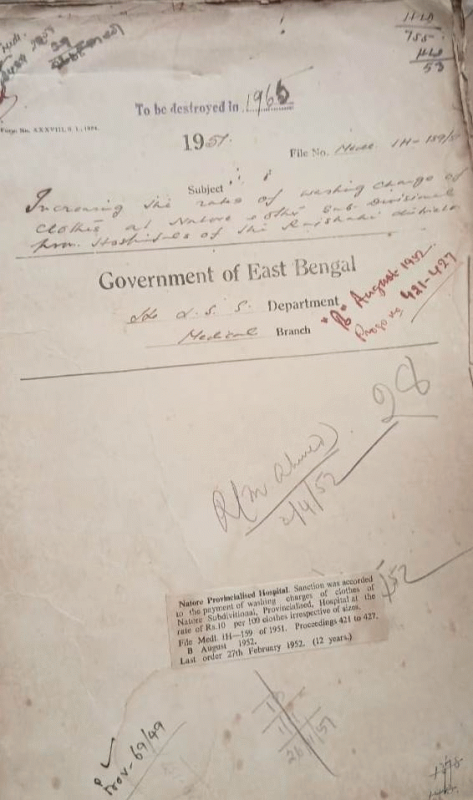 H.D
755
53
To be destroyed in 1966
1951
File No. Medl. 1H-159/51
Subject
Increasing the rate of washing charge of
clothes at Natore & other Sub-Divisional
prov. Hospitals of the Rajshahi district
Government of East Bengal
Department
Medical Branch
"B" August 1952
Progs No 421-427
28
2/4/52
Natore Provincialised Hospital. Sanction was accorded
to the payment of washing charges of clothes of
Natore Subdivisional, Provincialised, Hospital at the
rate of Rs.10 per 100 clothes irrespective of sizes.
File Medl. 1H—159 of 1951. Proceedings 421 to 427.
B August 1952.
Last order 27th February 1952. (12 years.)
Prov-69/49